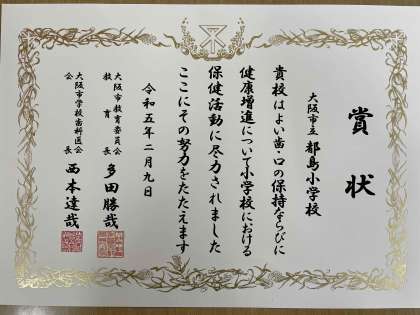 賞状
大阪市立 都島小学校
貴校はよい歯・口の保持ならびに
健康増進について小学校における
保健活動に尽力されました
ここにその努力をたたえます
令和五年二月九日
大阪市教育委員会
教育長 多田勝哉
大阪市学校歯科医会
会長 西本達哉